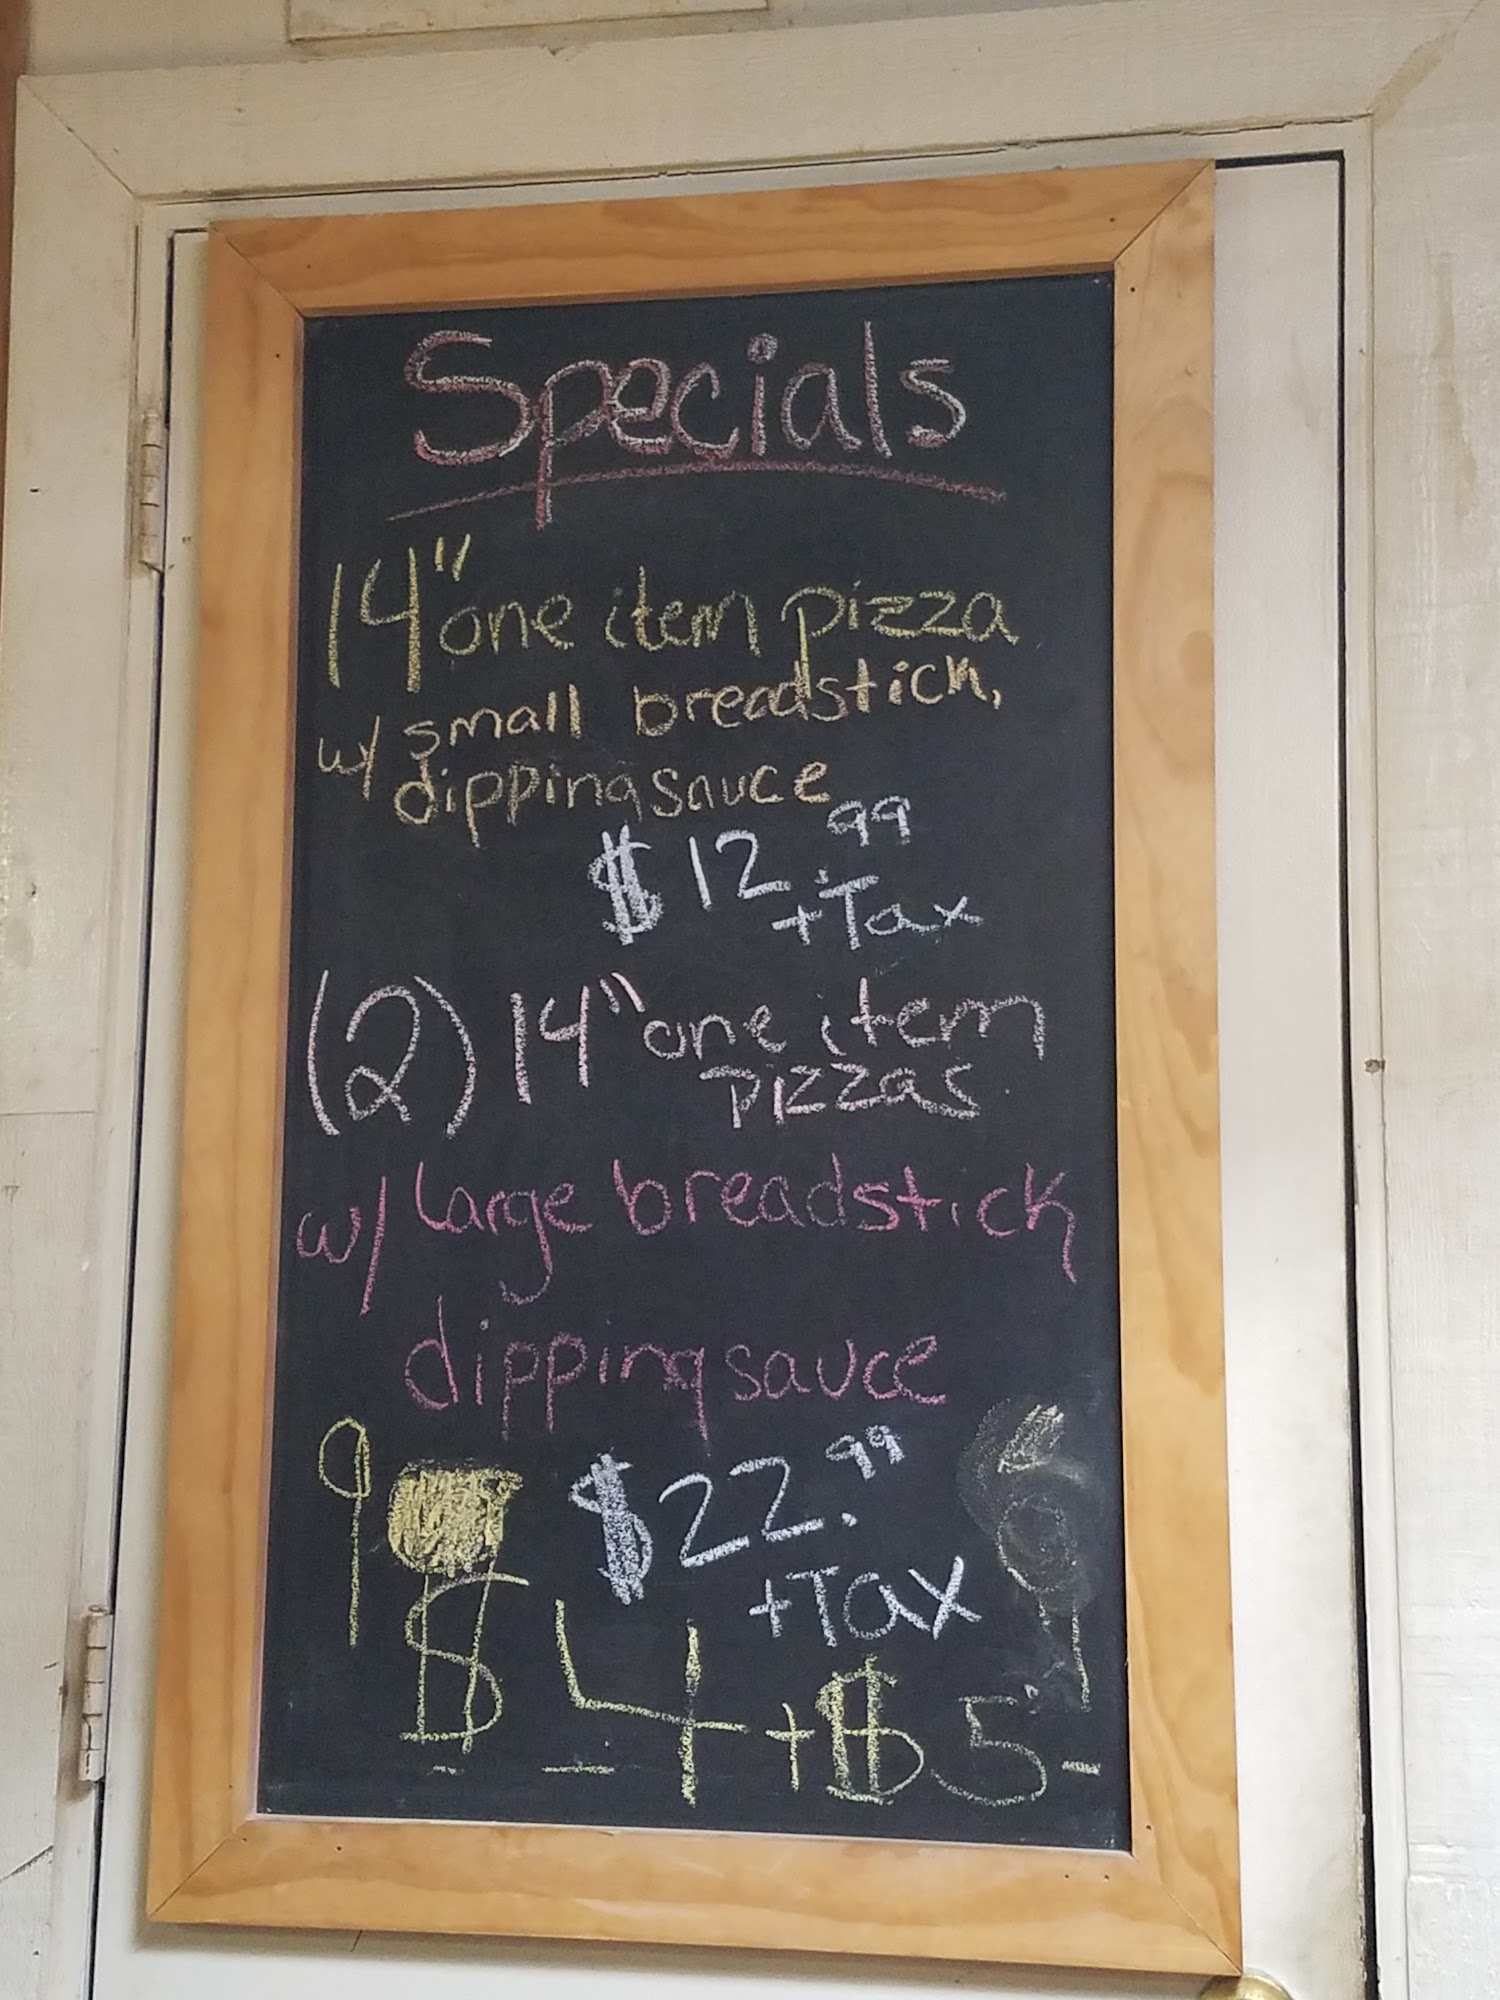 Specials
14" one item pizza
w/ small breadstick,
dipping sauce
$12.99
+Tax
(2) 14" one item
pizzas
w/ Large breadstick
dipping sauce
9 $22.99
+Tax
$ 4 + $5-